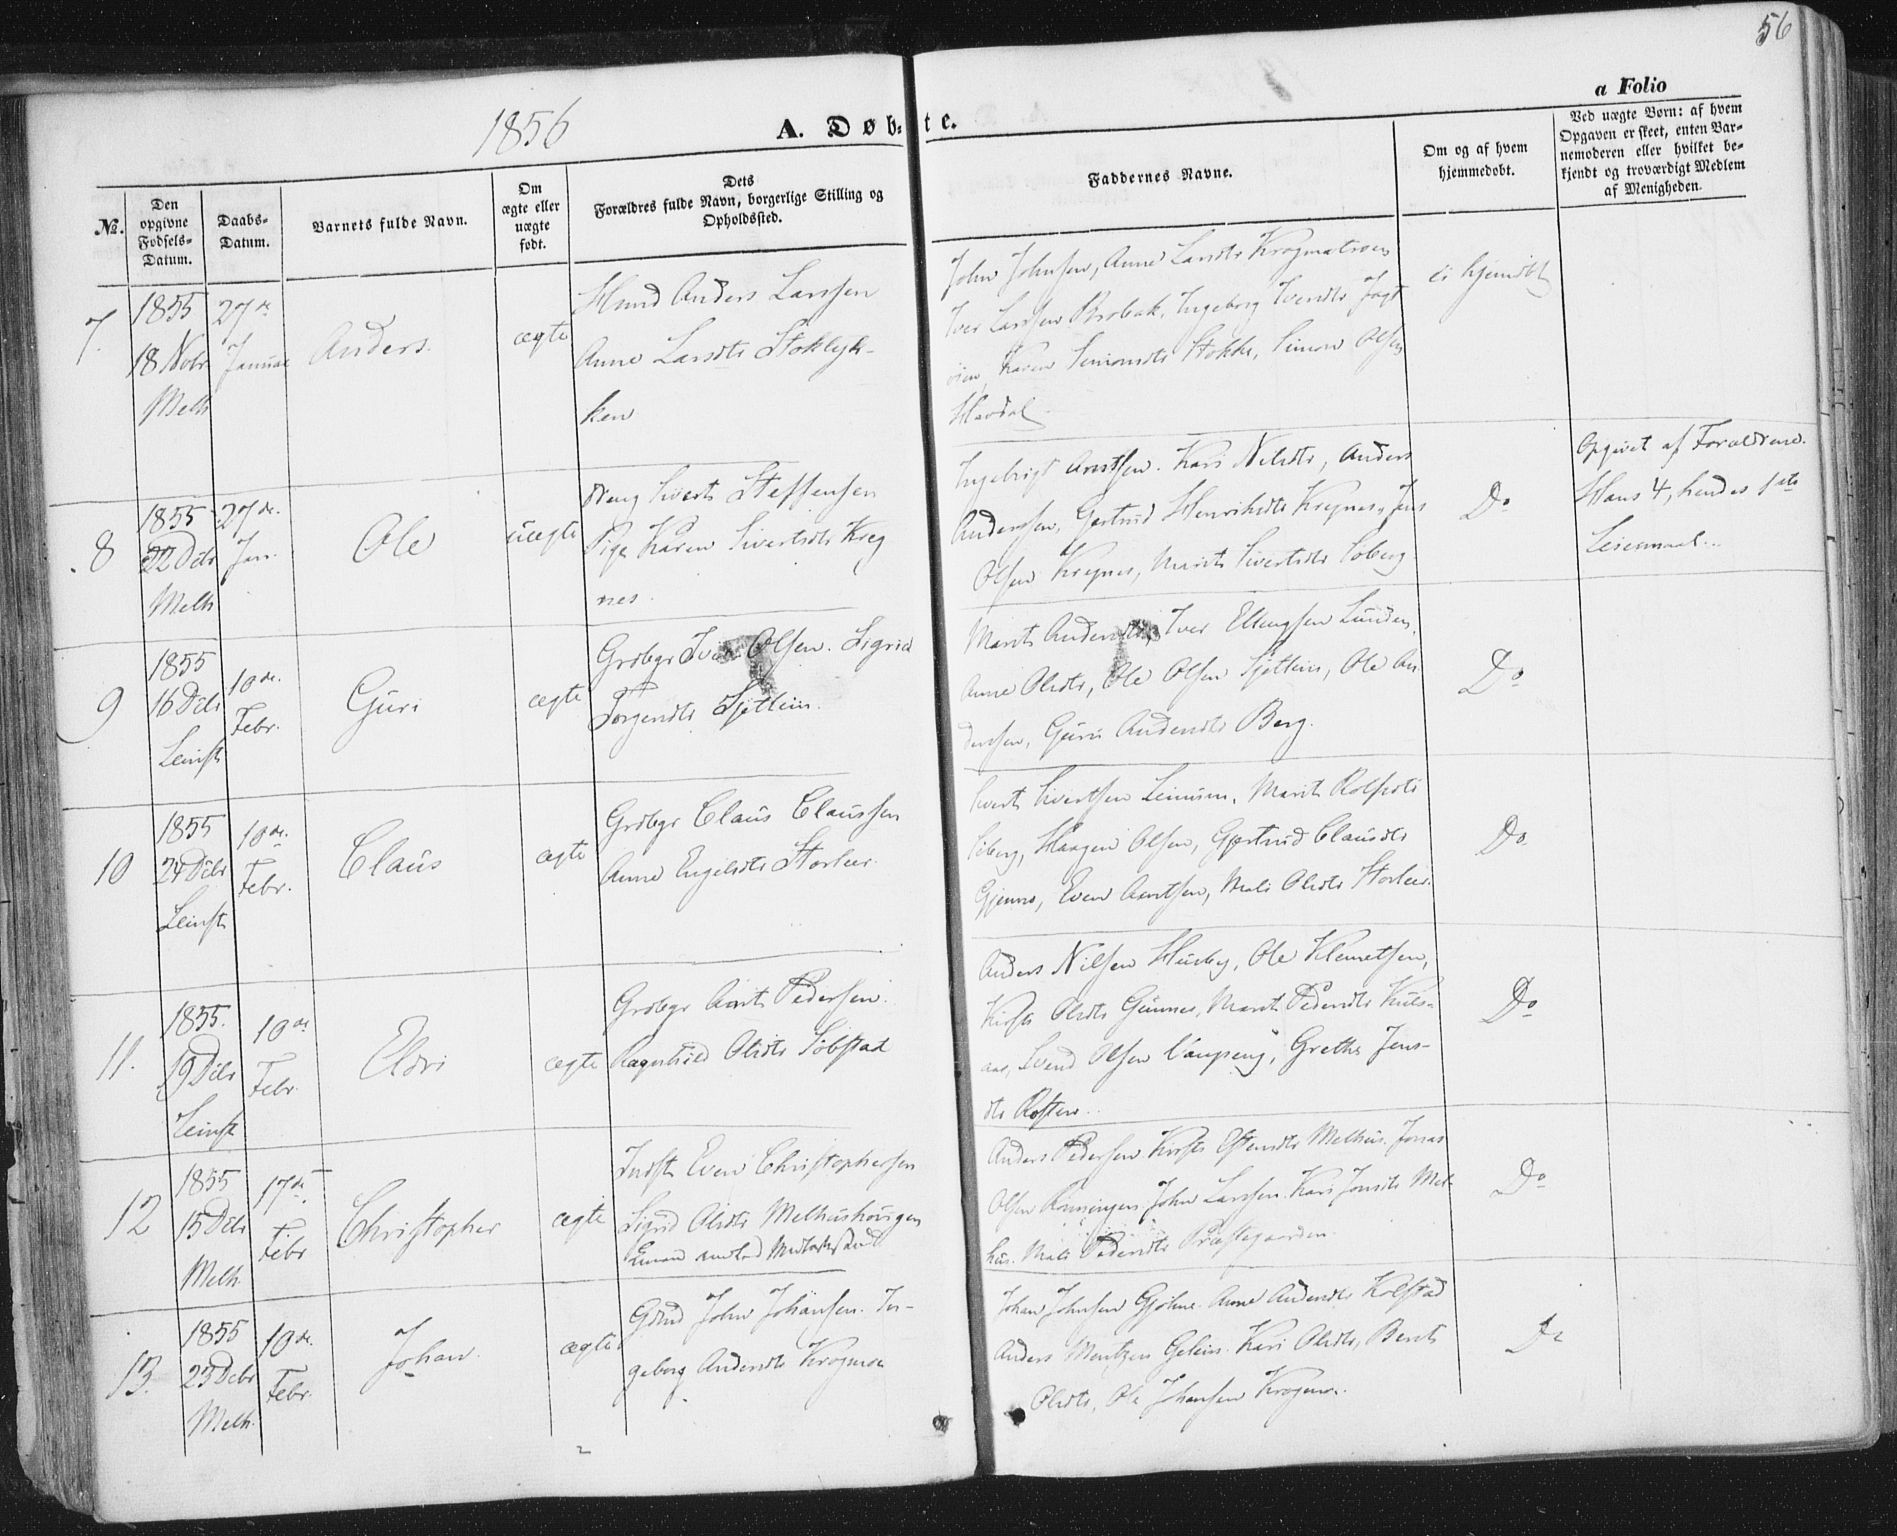 56
1856
A. Døb-te.
a Folio
№.
Den opgivne Fødsels-Datum.
Daabs-Datum.
Barnets fulde Navn.
Om ægte eller uægte født.
Dets Forældres fulde Navn, borgerlige Stilling og Opholdssted.
Faddernes Navne.
Om og af hvem hjemmedøbt.
Ved uægte Børn: af hvem Opgaven er skeet, enten Barnemoderen eller hvilket bekjendt og troværdigt Medlem af Menigheden.
7.
1855
18 Nobr
Melh
27de
Januar
Anders.
ægte
Hmnd Anders Larssen
Anne Larsdtr Stoklyk-
ken
John Johnsen, Anne Larsdtr Krogmotroen
Iver Larssen Brobak, Ingeborg Iversdtr Jagt
øien, Karen Simonsdtr Stokke, Simon Olsen
Havdal
ei hjemdbt
8
1855
22 Dcbr
Melh
27de.
Jan.
Ole
uægte
Dreng Sivert Steffensen
Pige Karen Sivertsdtr Kreg
nes.
Ingebrigt Arntsen. Kari Nilsdtr, Anders
Anderssen, Gjertrud Henriksdtr Kregnes, Jens
Olsen Kregnes, Marit Sivertsdtr Soberg
Do
Opgivet af Forældrene.
Hans 4, hendes 1ste
Leiermaal..
9
1855
16 Dcbr
Leinst
10de.
Febr.
Guri
ægte
Grdbgr Iver Olsen. Sigrid
Torgersdtr Sjetlein.
Marit Andersdtr, Iver Ellingsen Lunden,
Anne Olsdtr, Ole Olsen Sjetlein, Ole An
derssen, Guri Andersdtr Berg.
Do
10
1855
24 Dcbr
Leinst
10de.
Febr.
Claus
ægte
Grdbgr Claus Claussen
Anne Engelsdtr Storler.
Sivert Sivertsen Leinum, Marit Rolfsdtr
Siberg, Haagen Olsen, Gjertrud Clausdtr
Gjenne, Even Arntsen, Mali Olsdtr Storler.
Do
11.
1855.
19 Dcbr
Leinst
10de
Febr.
Eldri
ægte
Grdbgr Arnt Pedersen.
Ragnhild Olsdtr Sobstad
Anders Nilsen Husby, Ole Klemetsen,
Kirsti Olsdtr Gunnes, Marit Pedersdtr Kuls-
aas, Svend Olsen Caupang, Grethe Jens-
dtr Rosten..
Do
12
1855
15 Dcbr
Melh
17de.
Febr
Christopher
ægte
Indst Even Christophersen
Sigrid Olsdtr Melhushougen
Anders Pedersen Kirsti Estensdtr Melhus. Jonas
Olsen Rønningen, John Larssen. Kari Jonsdtr Mel-
hus. Mali Pedersdtr Præstegaarden.
Do
13.
1855
23 Dcbr
Melh.
10de.
Febr.
Johan.
ægte
Gdmd John Johansen. In-
geborg Andersdtr Krogmoe
Johan Johnsen Gjøhne. Anne Andersdtr Kolstad
Anders Mentzen Gelein. Kari Olsdtr, Berit
Olsdtr, Ole Johansen Krogmo.
Do